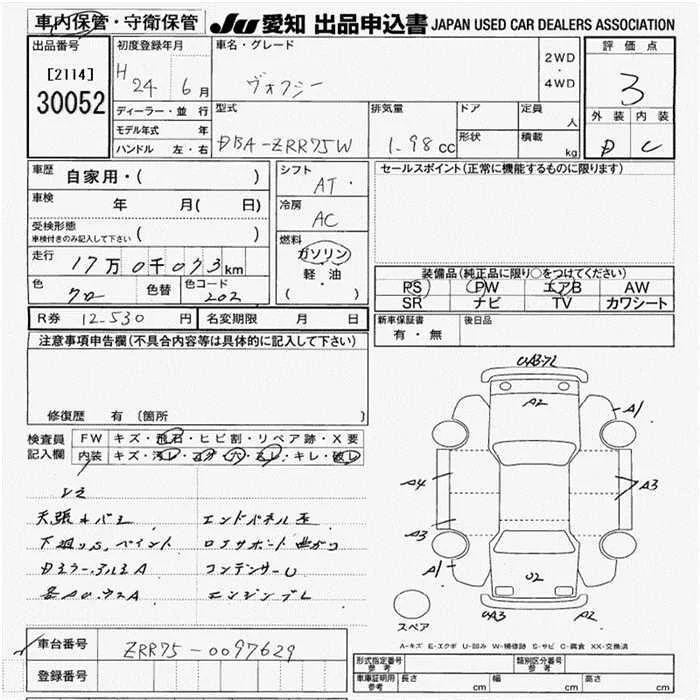 車内保管・守衛保管
JU 愛知 出品申込書 JAPAN USED CAR DEALERS ASSOCIATION
出品番号
[2114]
30052
初度登録年月
H 24 6月
ディーラー・並 行
モデル年式 年
ハンドル 左・右
車名・グレード
ヴォクシー
2WD
・
4WD
型式
DBA-ZRR75W
排気量
1.98cc
ドア
形状
定員
人
積載
kg
評価点
3
外装 内装
D C
車歴 自家用・( )
車検 年 月( 日)
受検形態
車検付きのみ記入して下さい ( )
走行 17万0千073km
色 クロ 色替 色コード 202
シフト
AT
冷房
AC
燃料
ガソリン
軽・油
( ・ )
セールスポイント(正常に機能するものに限ります)
装備品(純正品に限り○をつけてください)
PS PW エアB AW
SR ナビ TV カワシート
R券 12.530 円 名変期限 月 日
新車保証書
有・無
後日品
注意事項申告欄(不具合内容等は具体的に記入して下さい)
修復歴 有 〔箇所 〕
検査員
記入欄
FW キズ・飛石・ヒビ割・リペア跡・X要
内装 キズ・汚レ・コゲ・穴・スレ・キレ・破レ
天張キバミ エンドパネル
下廻りS、ペイント ロアサポート曲がり
Dミラー コンデンサーU
各AU、ワA エンジンブレ
UAB-7L
A2
A1
A4
A3
A3
A1
U2
UA3
A2
スペア
A-キズ E-エクボ U-凹み W-補修跡 S-サビ C-腐食 XX-交換済
車台番号 ZRR75-0097629
登録番号
形式指定番号
参考
類別区分番号
参考
車庫証明用
参考
長さ cm 幅 cm 高さ cm